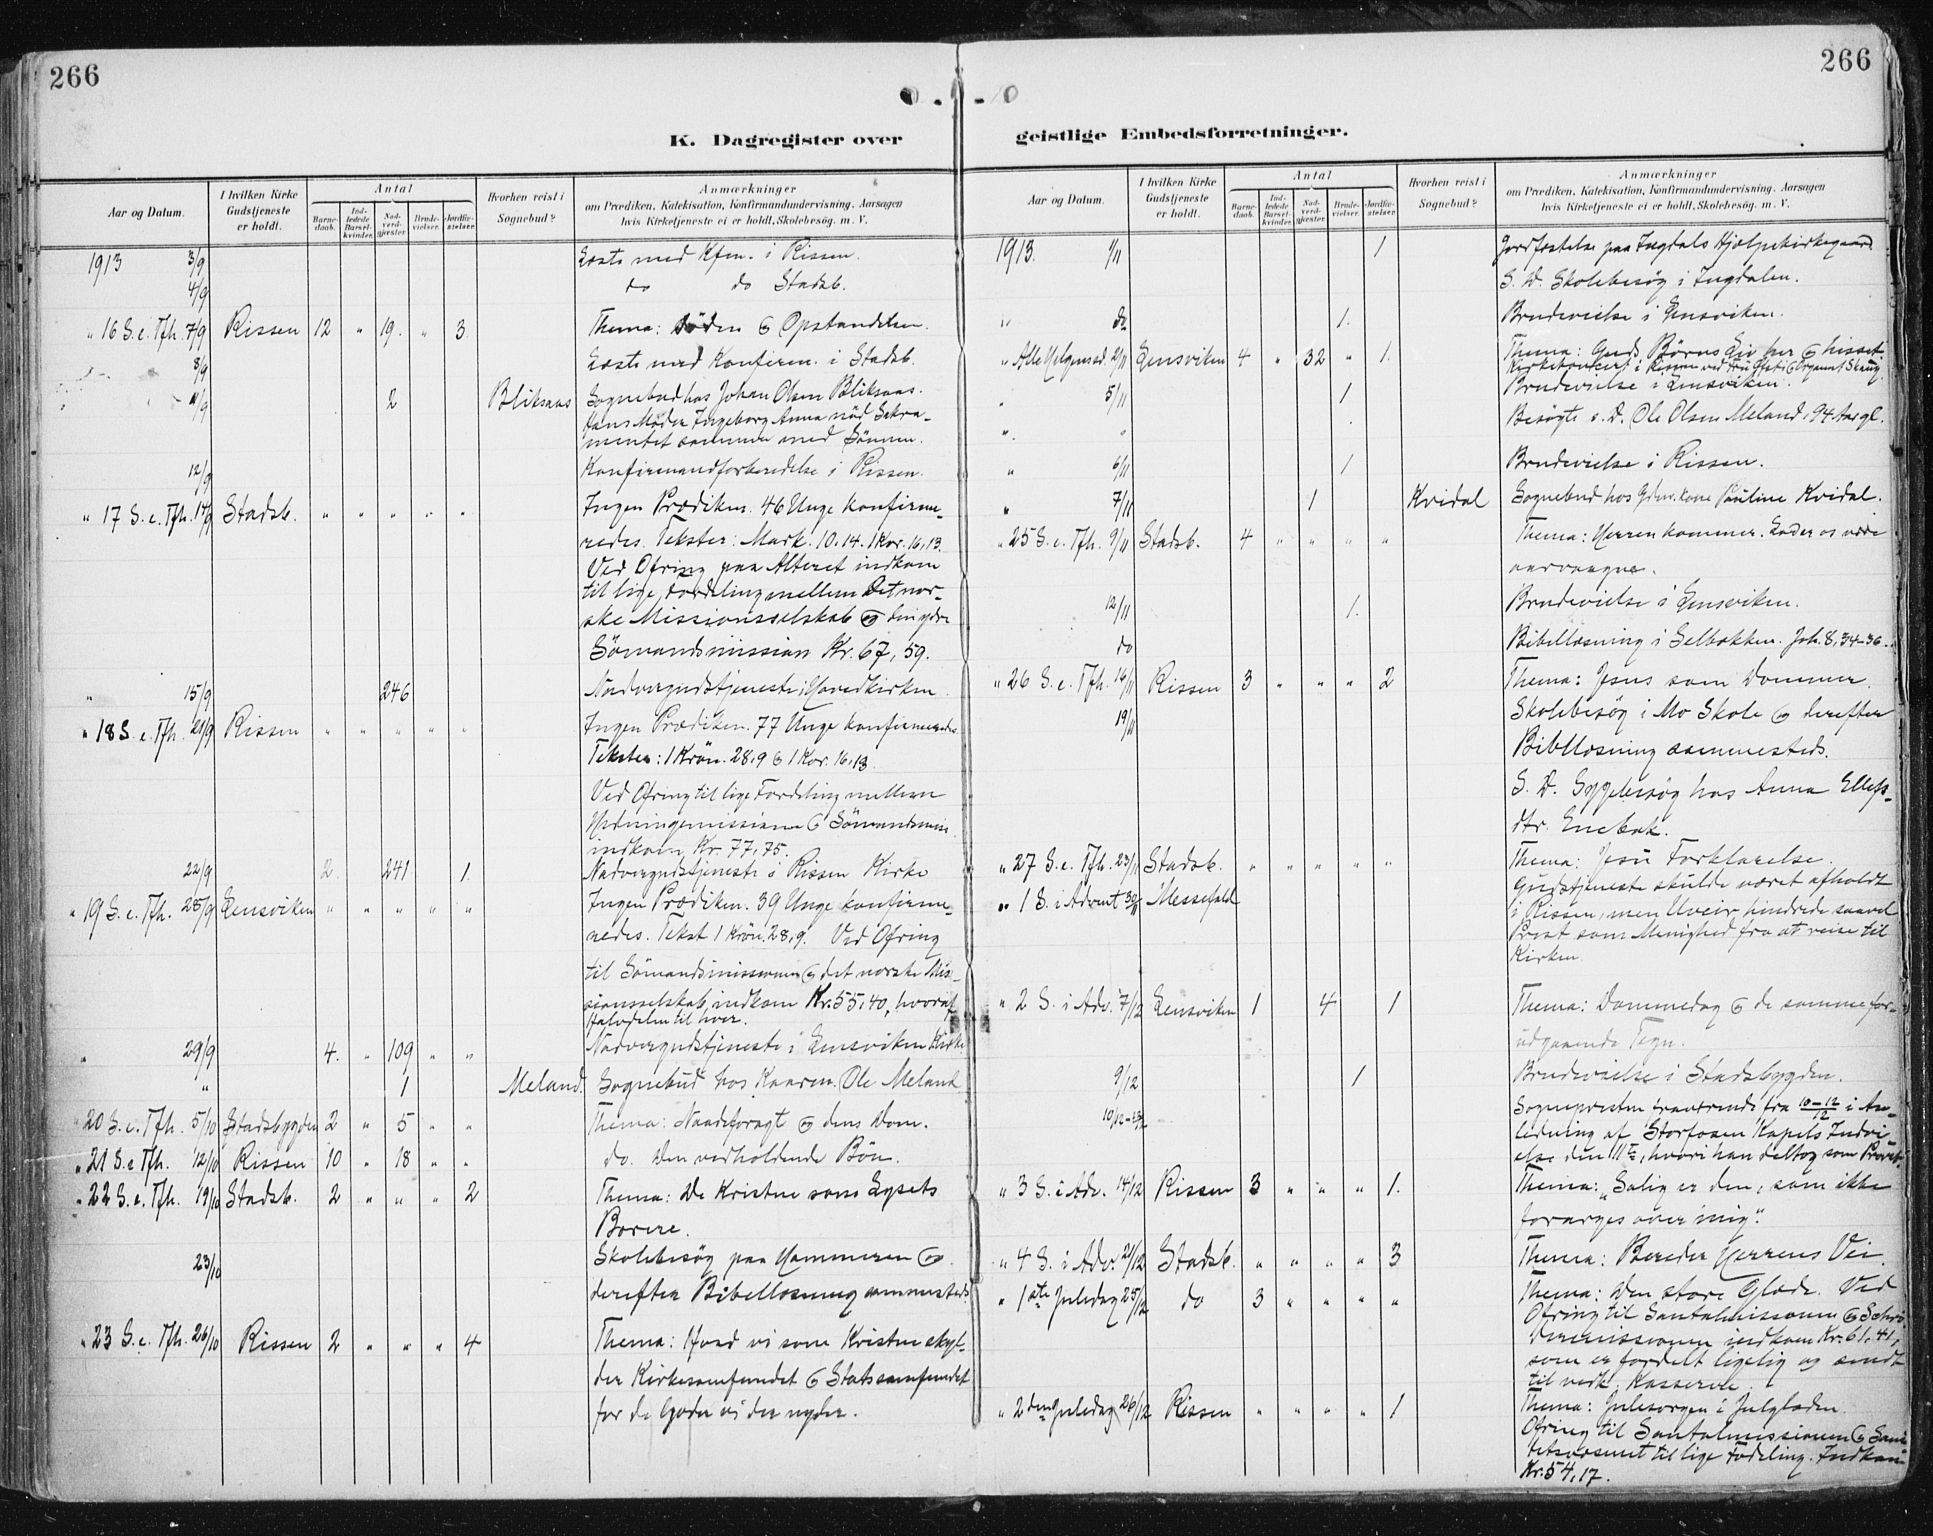 266
266
K. Dagregister over
geistlige Embedsforretninger.
Aar og Datum.
I hvilken Kirke Gudstjeneste er holdt.
Antal
Barnedaab.
Indledede Barselkvinder.
Nadverdgjester
Brudevielser.
Jordfæstelser
Hvorhen reist i Sognebud?
Anmærkninger
om Prædiken, Katekisation, Konfirmandundervisning, Aarsagen
hvis Kirketjeneste ei er holdt, Skolebesøg, m. V.
1913 3/9 Læste med Kfm. i Rissen.
4/9 do do Stadsb.
" 16 S. e. Tfh. 7/9 Rissen 12 " 19. " 3. Thema: Döden & Opstandelsen.
8/9 Læste med Konfirm. i Stadsb.
11/9 2 Bliksaas Sognebud hos Johan Olsen Bliksaas.
Hans Moder Ingeborg Anna nöd Sakra-
mentet sammen med Sönnen.
12/9 Konfirmandforberedelse i Rissen.
" 17 S. e. Tfh. 14/9 Stadsb. " " " " " Ingen Prædiken. 46 Unge konfirme-
redes. Tekster: Mark. 10.14. 1 Kor. 16,13.
Ved Ofring paa Alteret indkom
til lige fordeling mellem Det nor-
ske Missionsselskab & den ydre
Sömandsmission Kr. 67,59.
" 15/9 246 Nadvergudstjeneste i Hovedkirken.
" 18 S. e. Tfh. 21/9 Rissen " " " " " Ingen Prædiken. 77 Unge konfirmeredes.
Tekster: 1 Krön. 28,9 & 1 Kor. 16,13.
Ved Ofring til lige Fordeling mellem
Hedningemissionen & Sömandsmiss.
indkom Kr. 77,75.
22/9 2. 241 1. Nadvergudstjeneste i Rissen Kirke
" 19 S. e. Tfh. 28/9 Lensviken " " " " " Ingen Prædiken. 39 Unge konfirme-
redes. Tekst 1 Krön. 28,9. Ved Ofring
til Sömandsmissionen & det norske Mis-
sionsselskab indkom Kr. 55,40, hvoraf
Halvdelen til hver.
" 29/9 4. " 109 " " Nadvergudstjeneste i Lensviken Kirke
" 1 Meland. Sognebud hos Kaarm. Ole Meland
" 20 S. e. Tfh. 5/10 Stadsbygden 2 " 5 " " Thema: Naadeforagt & dens Dom.
" 21 S. e. Tfh. 12/10 Rissen 10 " 18 " " do. Den vedholdende Bön.
" 22 S. e. Tfh. 19/10 Stadsb. 2 " " " 2 Thema: De Kristne som Lysets
Borere.
23/10 Skolebesög paa Hammeren &
derefter Bibellæsning sammesteds.
" 23 S. e. Tfh. 26/10 Rissen 2 " " " 4 Thema: Hvad vi som Kristne skyl-
der Kirkesamfundet & Statssamfundet
for de Goder vi der nyder.
Aar og Datum.
I hvilken Kirke Gudstjeneste er holdt.
Antal
Barnedaab.
Indledede Barselkvinder.
Nadverdgjester
Brudevielser.
Jordfæstelser
Hvorhen reist i Sognebud?
Anmærkninger
om Prædiken, Katekisation, Konfirmandundervisning, Aarsagen
hvis Kirketjeneste ei er holdt, Skolebesøg, m. V.
1913. 1/11 1 Jordfæstelse paa Ingdals Hjælpekirkegaard.
S. D. Skolebesög i Ingdalen.
" do 1. Brudevielse i Lensviken.
" Alle Helgensd. 2/11 Lensviken 4 " 32 " 1. Thema: Guds Börns Liv her & hisset
Kirkekoncert i Rissen ved Fru & Organist Skaug.
" 5/11 1 Brudevielse i Lensviken.
" " Besögte s. D. Ole Olsen Meland, 94 Aar gl.
" 6/11 1 Brudevielse i Rissen.
" 7/11 1 Kvidal Sognebud hos Gdmkone Pauline Kvidal.
" 25 S. e. Tfh. 9/11 Stadsb. 4 " " " " Thema: Herren kommer. Lader os være
aarvaagne.
12/11 1. Brudevielse i Lensviken.
do Bibellæsning i Selbækken. Joh. 8,34-36.
" 26 S. e. Tfh. 16/11 Rissen 3 " " " 2 Thema: Jesus som Dommer.
19/11 Skolebesög i Mo Skole & derefter
Bibellæsning sammesteds.
S. D. Sygebesög hos Anna Ellefs-
dtr. Enebak.
" 27 S. e. Tfh. 23/11 Stadsb. " " " " " Thema: Jesu Forklarelse.
" 1 S. i Advent 30/11 Messefald Gudstjeneste skulde været afholdt
i Rissen, men Uveir hindrede saavel
Prest som Menighed fra at reise til
Kirken.
" 2 S. i Adv. 7/12 Lensviken 1 4 1 Thema: Dommedag & de samme for-
udgaaende Tegn.
9/12 1 Brudevielse i Stadsbygden.
10/12-13/12 Sognepresten fraværende fra 10-12/12 i An-
ledning af Storfosen Kapels Indvi-
else den 11te, hvori han deltog som Provst.
" 3 S. i Adv. 14/12 Rissen 3 " " " 1. Thema: "Salig er den, som ikke
forarges over mig".
" 4 S. i Adv. 21/12 Stadsb. " " " " 3 Thema: Bereder Herrens Vei.
" 1ste Juledag 25/12 do 3 " " " " Thema: Den store Glæde. Ved
Ofring til Santalmissionen & Schrö-
dermissionen indkom Kr. 61,41,
som er fordelt ligelig og sendt
til vedk. Kasserere.
" 2den Juledag 26/12 Rissen " " " " 1 Thema: Julesorgen i Julglæden.
Ofring til Santalmissionen & Sani-
tetsvæsenet til lige Fodeling. Indkom
Kr. 54,17.